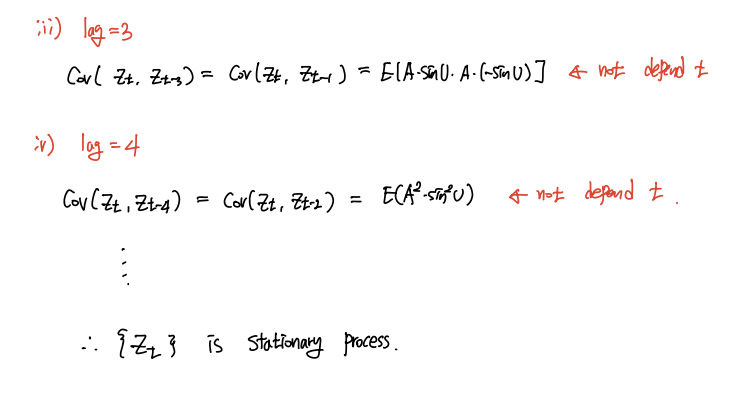 iii) lag = 3
Cov( Zt, Zt-3) = Cov(Zt, Zt-1) = E[A·sinU· A·(-sinU)] ← not depend t
iv) lag = 4
Cov(Zt, Zt-4) = Cov(Zt, Zt-2) = E(A²·sin²U) ← not depend t.
⋮
∴ {Zt} is stationary process.